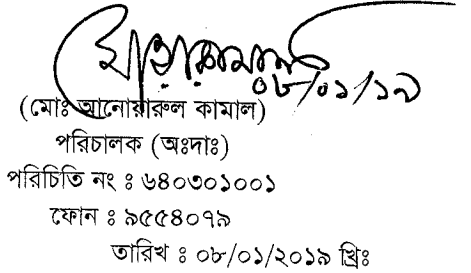 ০৮/০১/১৯
(মোঃ আনোয়ারুল কামাল)
পরিচালক (অঃদাঃ)
পরিচিতি নং : ৬৪০৩০১০০১
ফোন : ৯৫৫৪০৭৯
তারিখ : ০৮/০১/২০১৯ খ্রিঃ